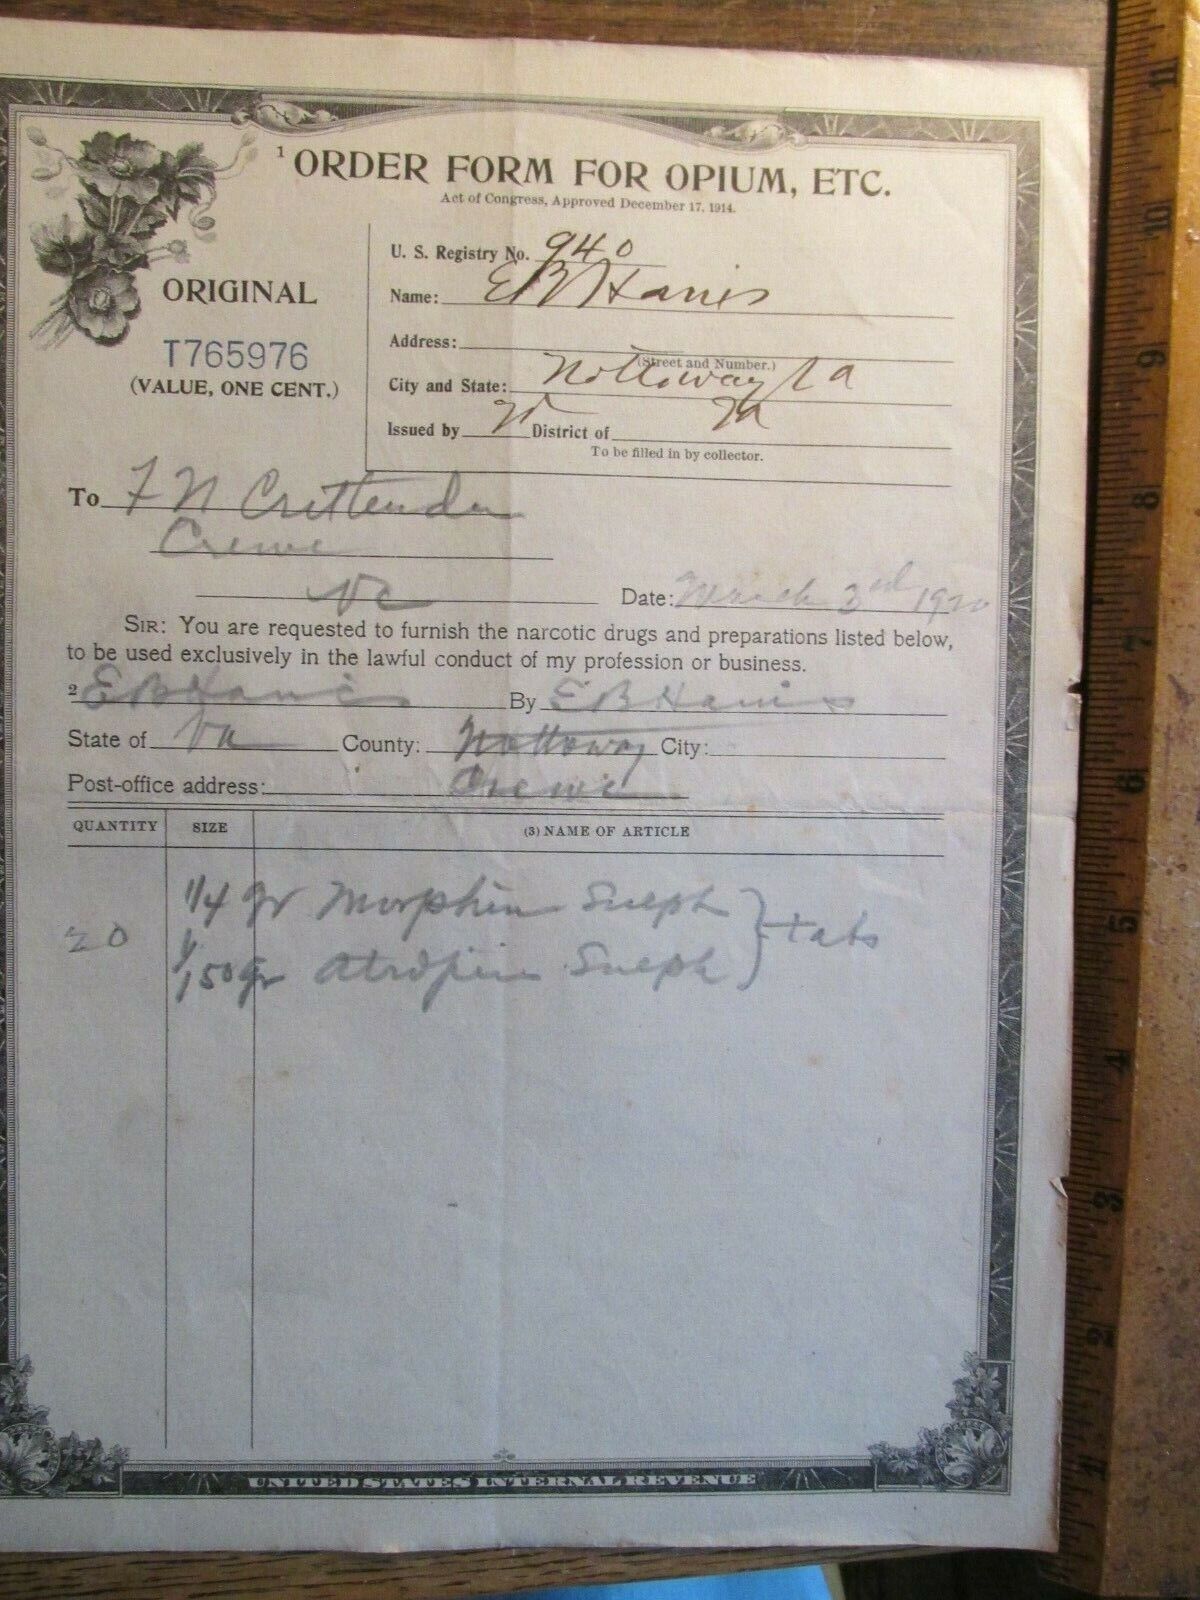 1 ORDER FORM FOR OPIUM, ETC.
Act of Congress, Approved December 17, 1914.
ORIGINAL
T765976
(VALUE, ONE CENT.)
U. S. Registry No. 940
Name: E B Harris
Address:
(Street and Number.)
City and State: Nottoway Va
Issued by 2d District of Va
To be filled in by collector.
To F N Crittenden
Crewe
Va
Date: March 3rd 1920
SIR: You are requested to furnish the narcotic drugs and preparations listed below,
to be used exclusively in the lawful conduct of my profession or business.
2 E B Harris By E B Harris
State of Va County: Nottoway City:
Post-office address: Crewe
QUANTITY SIZE (3) NAME OF ARTICLE
1/4 gr Morphin Sulph
20 } tabs
1/150 gr Atropin Sulph
UNITED STATES INTERNAL REVENUE
11
10
9
8
7
6
5
4
3
2
1